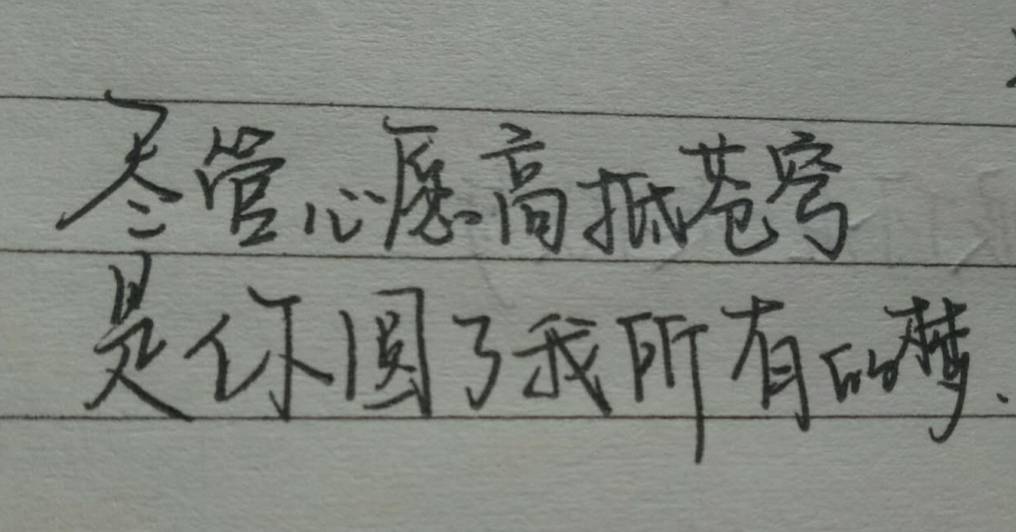 尽管心愿高抵苍穹
是你圆了我所有的梦.